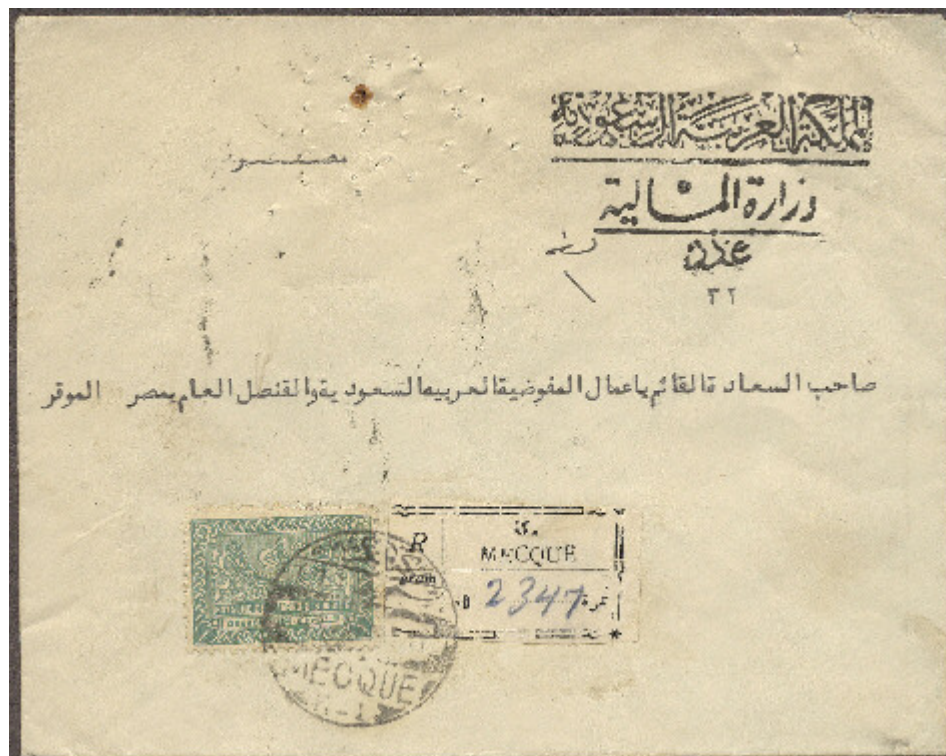 المملكة العربية السعودية
وزارة المالية
عدد
٣٢
صاحب السعادة القائم باعمال المفوضية العربية السعودية والقنصل العام بمصر الموقر
R
مكة
MECQUE
2347
نمرة
MECQUE